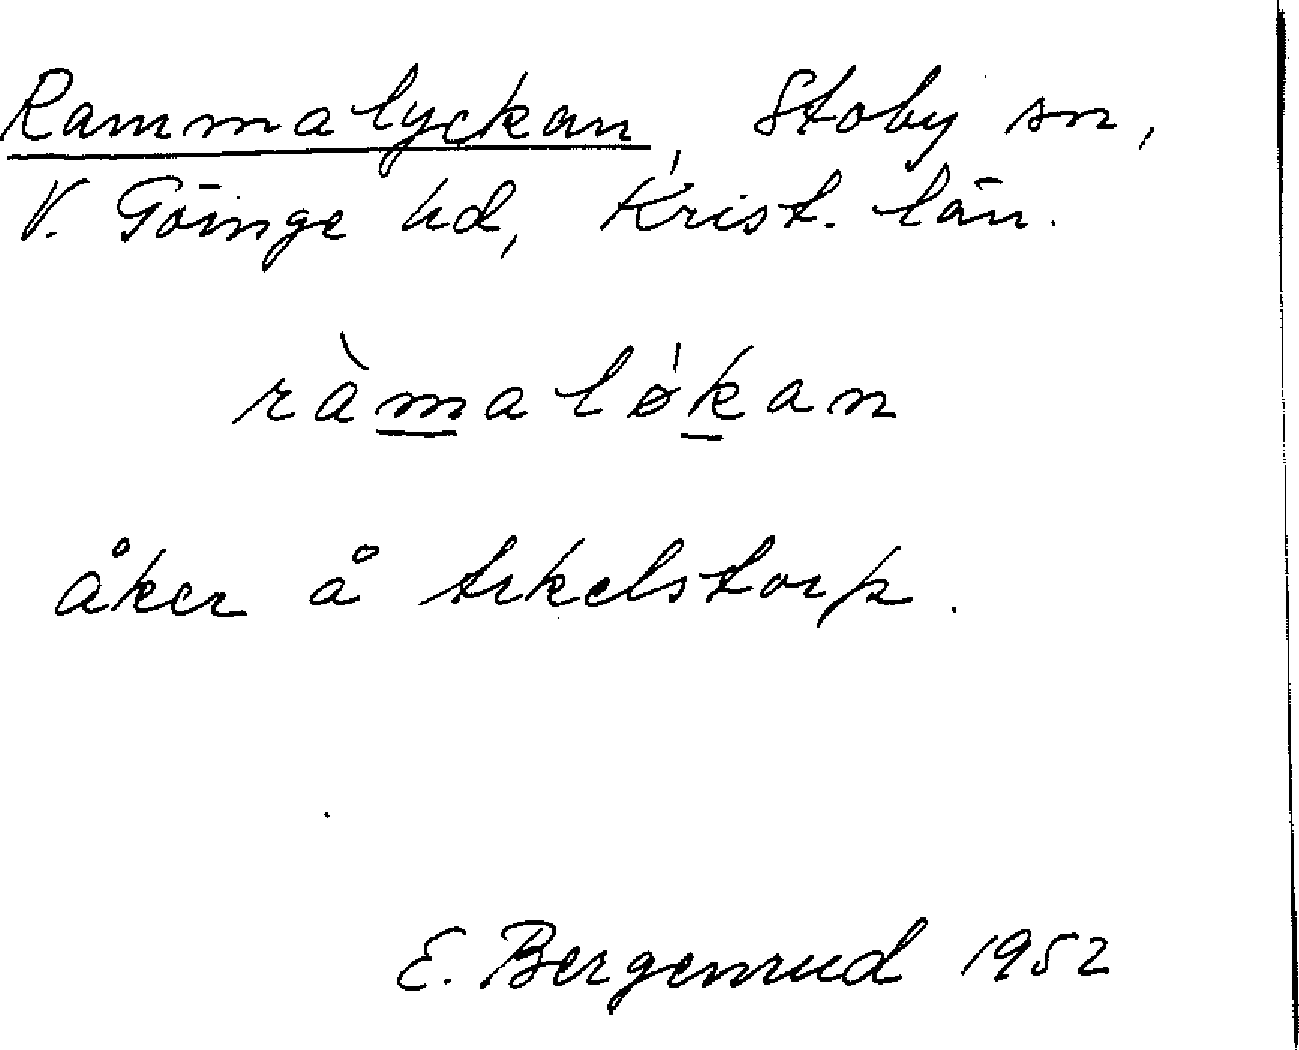 Rammalyckan, Stoby sn,
V. Göinge hd, Krist. län.
ràmalǿkan
åker å Arkelstorp.
E. Bergenrud 1952